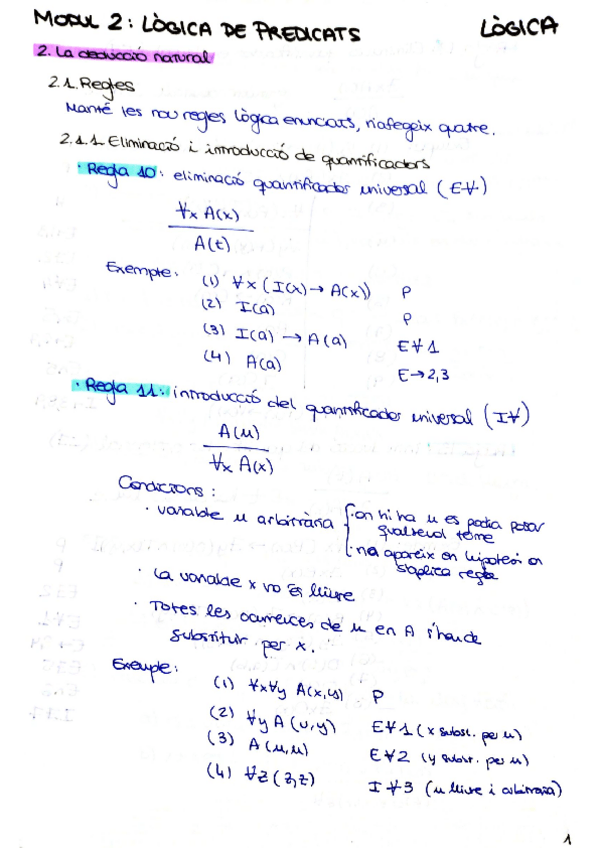 MODUL 2: LÒGICA DE PREDICATS LÒGICA
2. La deducció natural
2.1. Regles
Manté les nou regles lògica enunciats, n'afegeix quatre.
2.1.1. Eliminació i introducció de quantificadors
· Regla 10: eliminació quantificador universal (E∀)
∀x A(x)
A(t)
Exemple: (1) ∀x (I(x) → A(x)) P
(2) I(a) P
(3) I(a) → A(a) E∀1
(4) A(a) E→2,3
· Regla 11: introducció del quantificador universal (I∀)
A(u)
∀x A(x)
Condicions:
· variable u arbitrària
· on hi ha u es podia posar
qualsevol terme
· no apareix en hipòtesi on
s'aplica regla
· La variable x no és lliure
· Totes les ocurrències de u en A s'han de
substituir per x.
Exemple: (1) ∀x∀y A(x,y) P
(2) ∀y A(u,y) E∀1 (x subst. per u)
(3) A(u,u) E∀2 (y subst. per u)
(4) ∀z(z,z) I∀3 (u lliure i arbitrària)
1